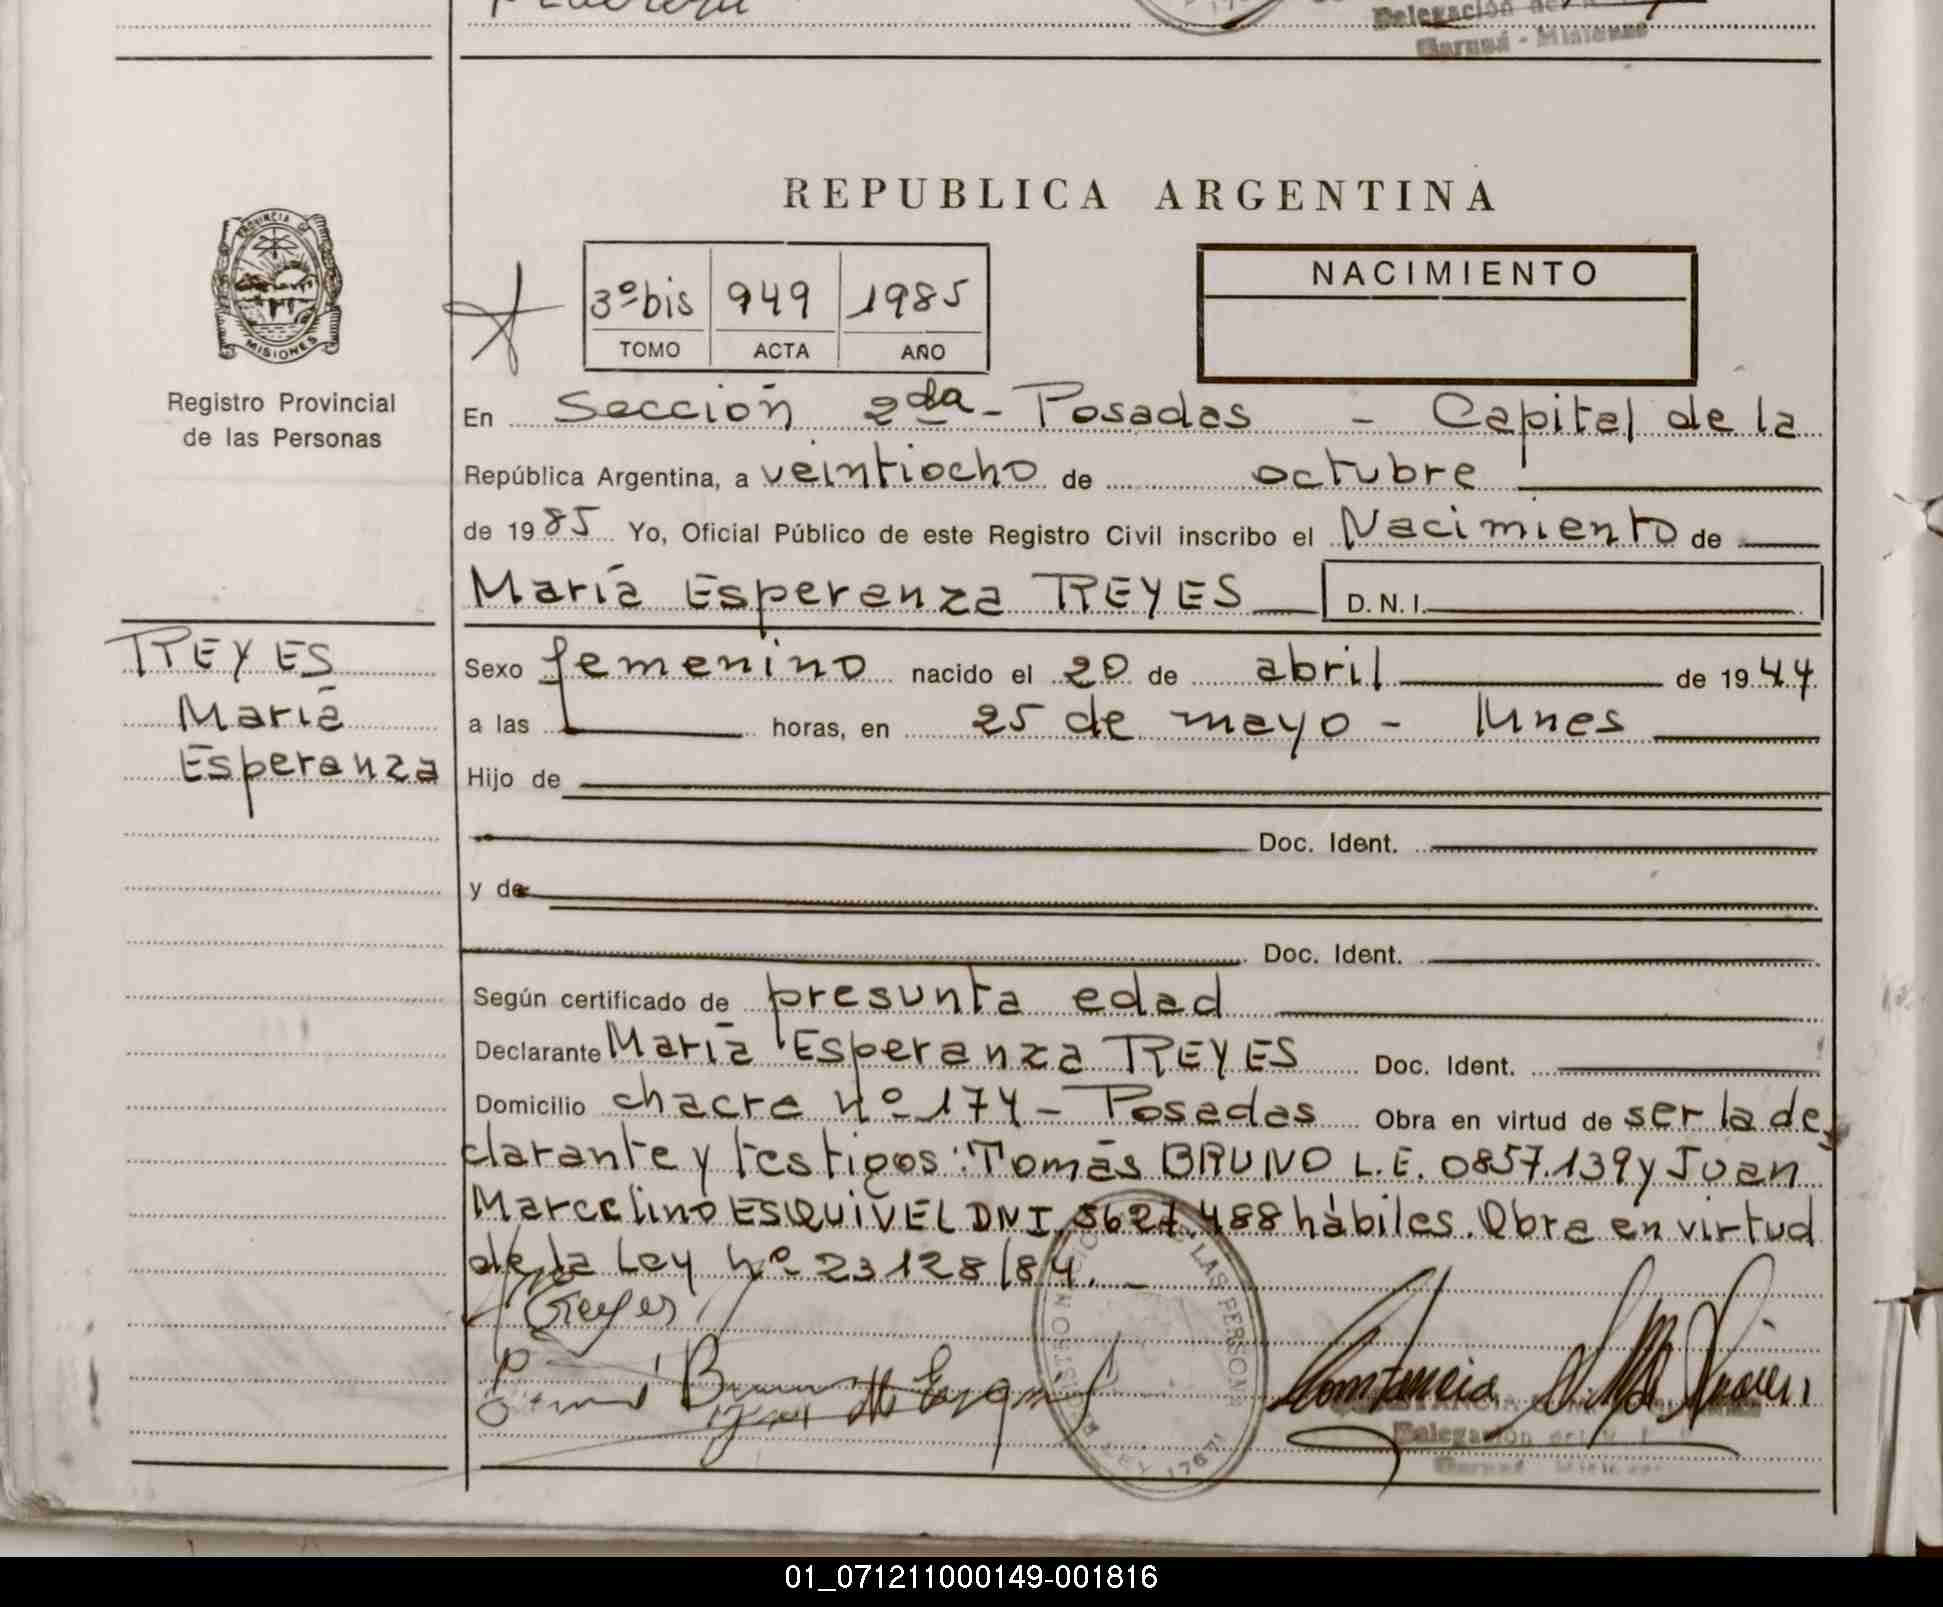 Delegación del
Garupá - Misiones
REPUBLICA ARGENTINA
PROVINCIA DE
MISIONES
Registro Provincial
de las Personas
3º bis 949 1985
TOMO ACTA AÑO
NACIMIENTO
En Sección 2da - Posadas - Capital de la
República Argentina, a veintiocho de octubre
de 1985 Yo, Oficial Público de este Registro Civil inscribo el Nacimiento de
María Esperanza REYES D.N.I.
REYES
María
Esperanza
Sexo femenino nacido el 20 de abril de 1944
a las horas, en 25 de mayo - lunes
Hijo de
Doc. Ident.
y de
Doc. Ident.
Según certificado de presunta edad
Declarante María Esperanza REYES Doc. Ident.
Domicilio chacra Nº 174 - Posadas Obra en virtud de ser la de
clarante y testigos: Tomás BRUNO L.E. 0857.139 y Juan
Marcelino ESQUIVEL DNI. 5627.488 hábiles. Obra en virtud
de la Ley Nº 23128/84. -
Reyes
LAS PERSONAS
Constancia
Delegación del
01_071211000149-001816